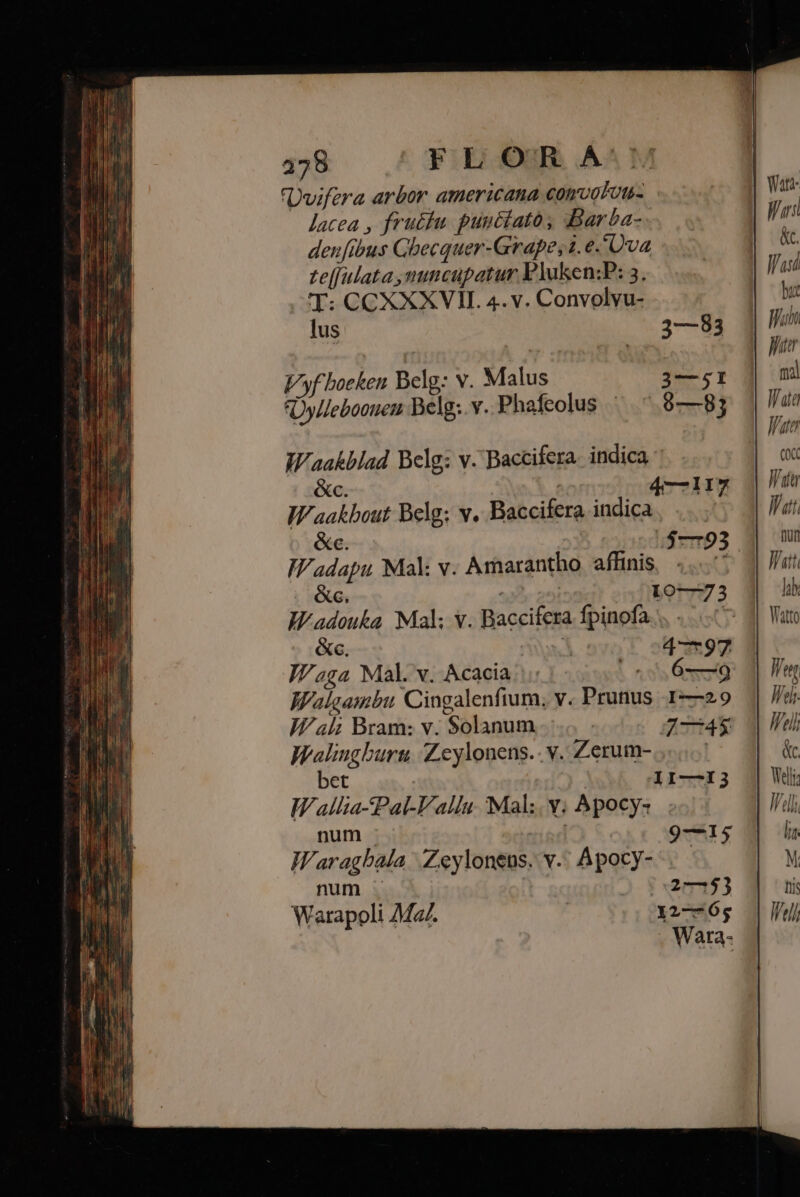 278 FLORA
Uvifera arbor americana convolvu-
lacea, fructu punctato, Barba-
denſibus Checquer-Grape, i.e. Uva
teſſulata, nuncupatur Pluken: P: 3.
T: CCXXXVII. 4. v. Convolvu-
lus 3—83
Vyfhoeken Belg: v. Malus 3—51
Vylleboonen Belg: v. Phaſeolus 8—83
Waakblad Belg: v. Baccifera indica
&c. 4—117
Waakhout Belg: v. Baccifera indica
&c. 5—93
Wadapu Mal: v. Amarantho affinis
&c. 10—73
Wadouka Mal: v. Baccifera ſpinoſa
&c. 4—97
Waga Mal. v. Acacia 6—9
Walgambu Cingalenſium. v. Prunus 1—29
Wali Bram: v. Solanum 7—45
Walinghuru Zeylonens. v. Zerum-
bet 11—13
Wallia-Pal-Vallu Mal: v: Apocy-
num 9—15
Waraghala Zeylonens. v. Apocy-
num 2—53
Warapoli Mal. 12—65
Wara-
Wara-
&c.
Water
mal
Water
Water
cocc
Water
nun
lab
Watto
&c.
M
nis